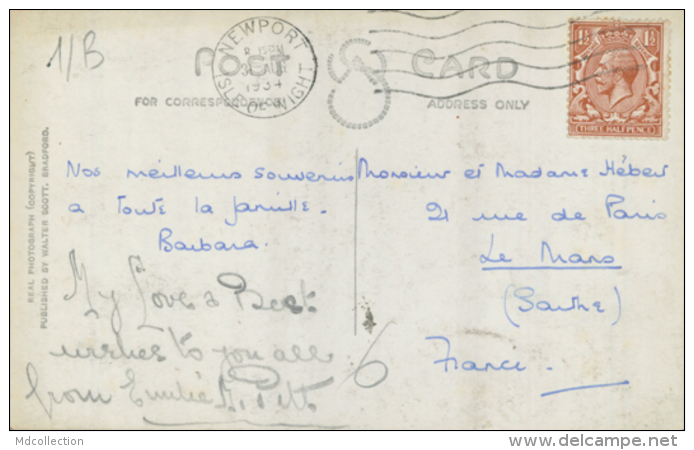 1/B
NEWPORT
ISLE OF WIGHT
1934
POST CARD
FOR CORRESPONDENCE
ADDRESS ONLY
THREE HALFPENCE
REAL PHOTOGRAPH (COPYRIGHT)
PUBLISHED BY WALTER SCOTT, BRADFORD.
Nos meilleurs souvenirs
a toute la famille.
Barbara.
My Love & Best
wishes to you all
from Emilie
Monsieur et Madame Hébert
21 rue de Paris
Le Mans
(Sarthe)
France.
6
Mdcollection
www.delcampe.net